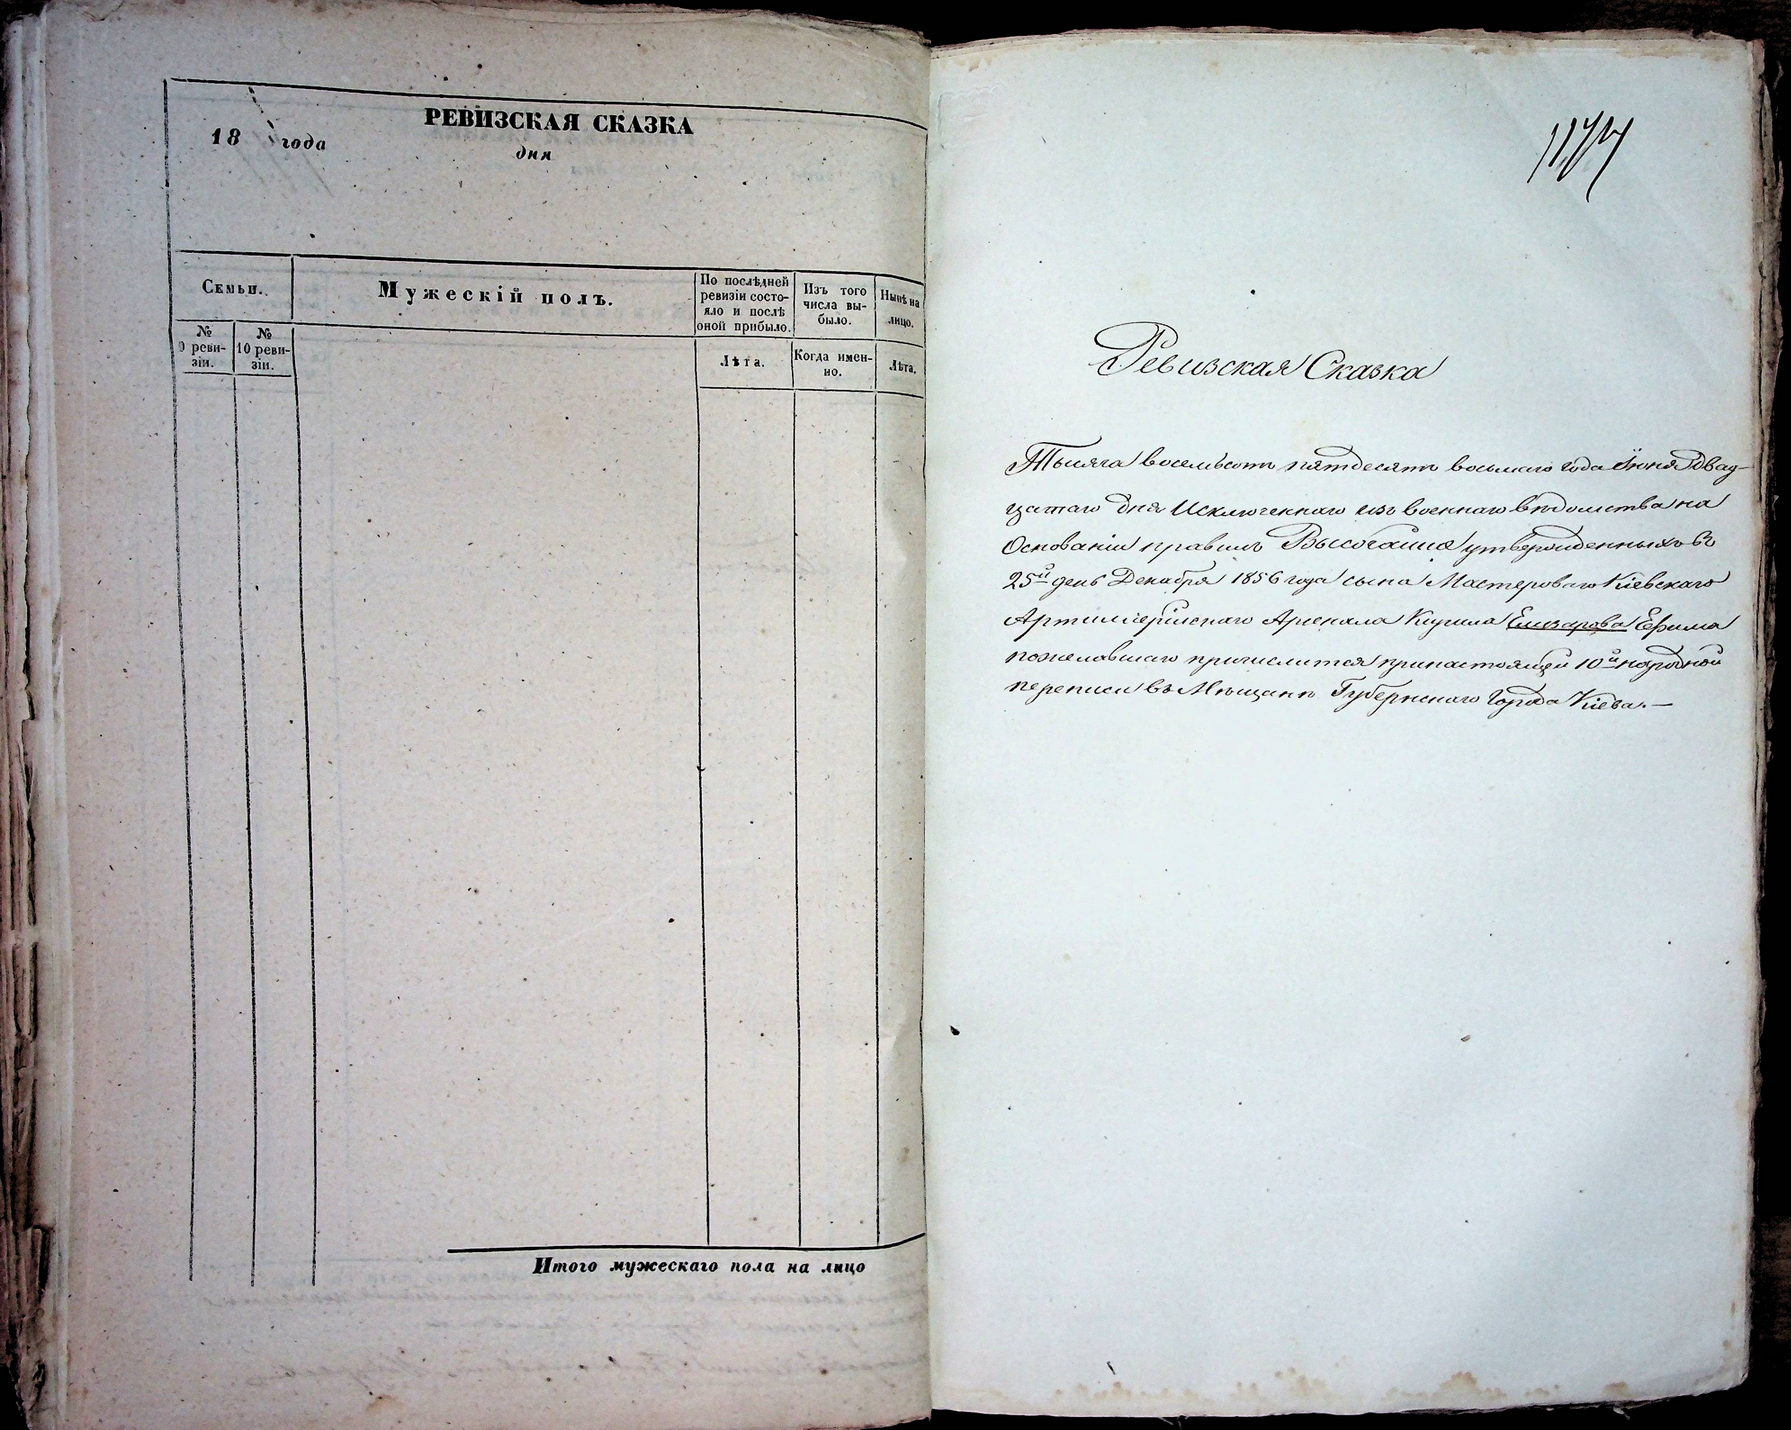 РЕВИЗСКАЯ СКАЗКА
18 года
дня
Семьи.
Мужескій полъ.
По послѣдней
ревизіи состо-
яло и послѣ
оной прибыло.
Изъ того
числа вы-
было.
Нынѣ на
лицо.
№
9 реви-
зіи.
№
10 реви-
зіи.
Лѣта.
Когда имен-
но.
Лѣта.
Итого мужескаго пола на лицо
Ревизская Сказка
Тысяча восемьсотъ пятдесятъ восьмаго года Іюня двад-
цатаго дня Исключеннаго изъ военнаго вѣдомства на
Основаніи правилъ Высочайше утвержденныхъ въ
25й день Декабря 1856 года сына Мастероваго Кіевскаго
Артиллерійскаго Арсенала Кирила Елизарова Ефима
пожелавшаго причислится принастоящей 10й народной
переписи въ Мѣщане Губернскаго Города Кіева.—